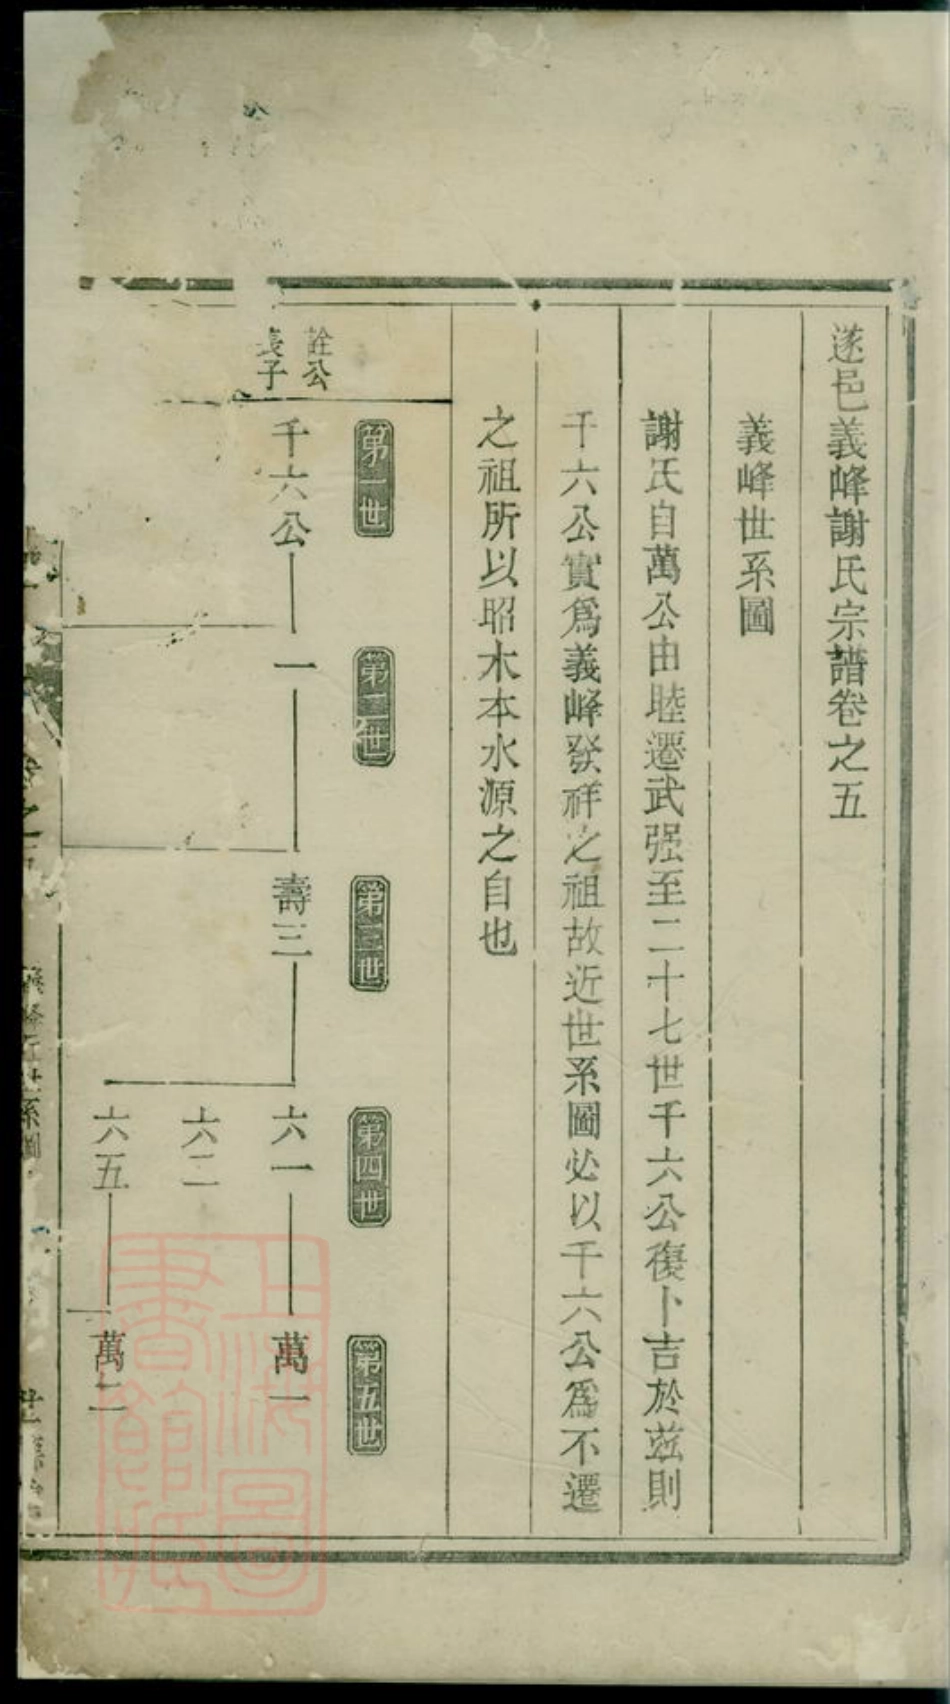 遂邑義峰謝氏宗譜卷之五
義峰世系圖
謝氏自萬公由睦遷武强至二十七世千六公復卜吉於茲則
千六公實爲義峰發祥之祖故近世系圖必以千六公爲不遷
之祖所以昭木本水源之自也
第一世
第二世
第三世
第四世
第五世
詮公
長子
千六公
一
壽三
六一
萬一
六二
六五
萬二
卷之五
義峰
世系圖
上海圖
書館藏